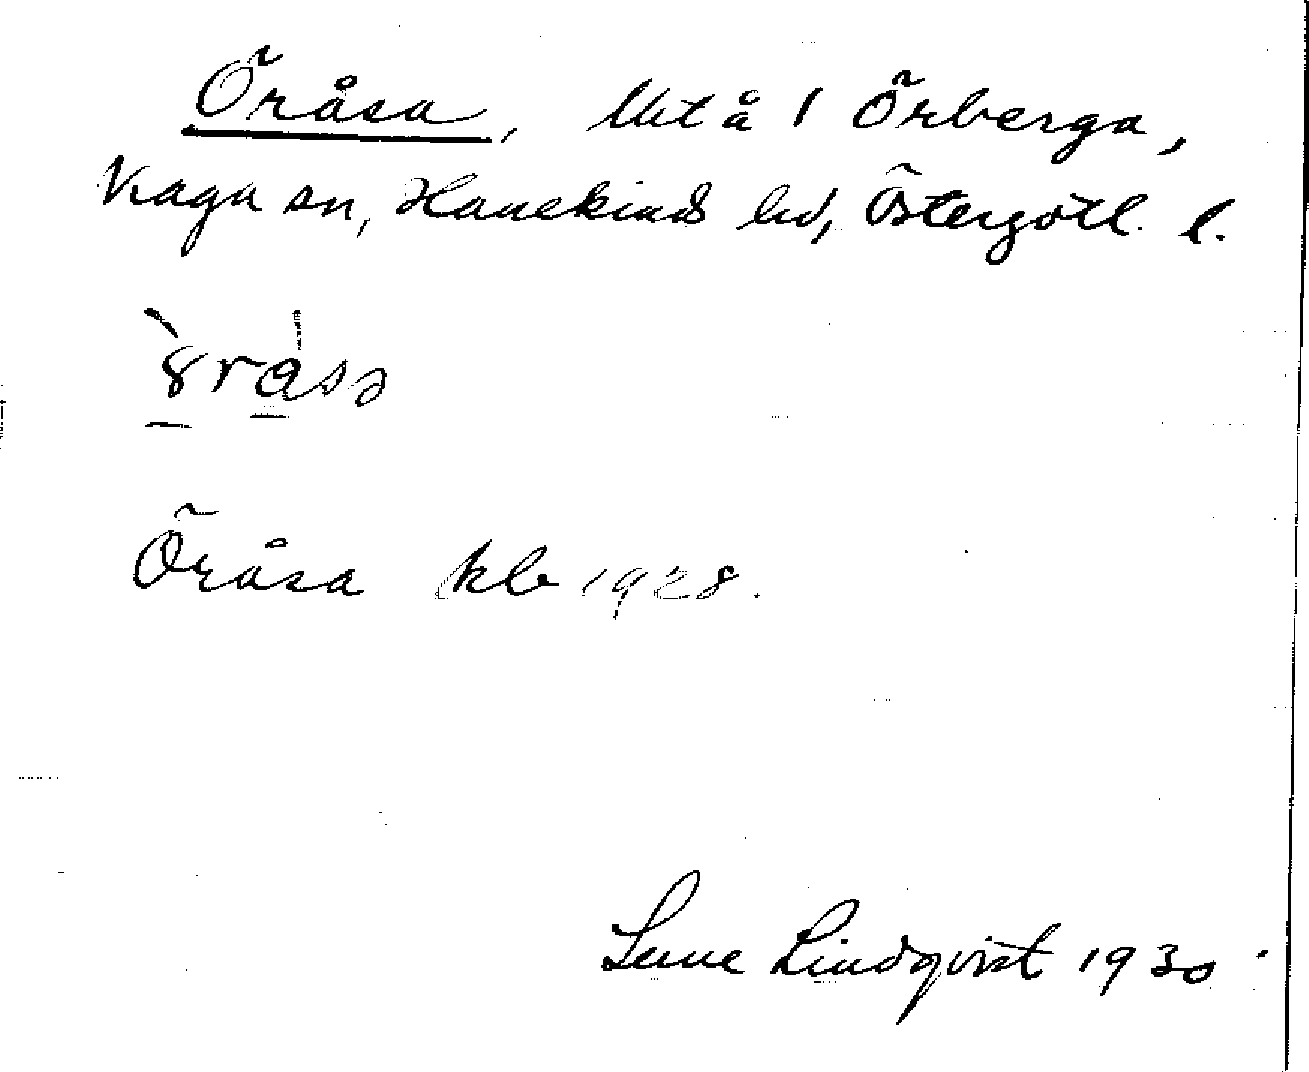 Öråsa, lht å 1 Örberga,
Kaga sn, Hanekinds hd, Östergötl. l.
Öråsa kb 1928.
Sune Lindqvist 1930